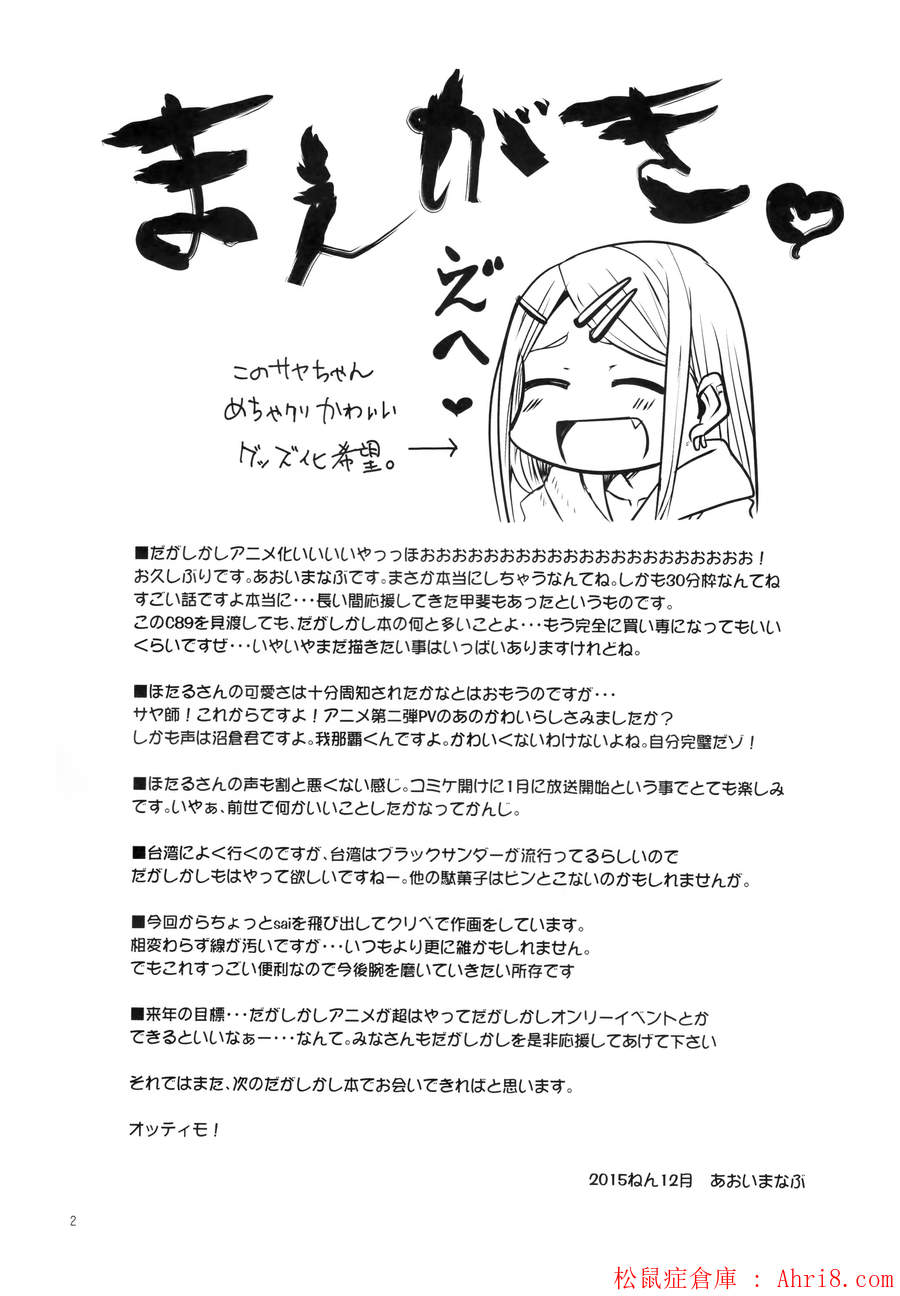 まえがき♥
えへ♥
このサヤちゃん
めちゃクリかわいい
グッズ化希望。→
■だがしかしアニメ化いいいいやっっほおおおおおおおおおおおおおおおおおおおおお!
お久しぶりです。あおいまなぶです。まさか本当にしちゃうなんてね。しかも30分枠なんてね
すごい話ですよ本当に・・・長い間応援してきた甲斐もあったというものです。
このC89を見渡しても、だがしかし本の何と多いことよ・・・もう完全に買い専になってもいい
くらいですぜ・・・いやいやまだ描きたい事はいっぱいありますけれどね。
■ほたるさんの可愛さは十分周知されたかなとはおもうのですが・・・
サヤ師!これからですよ!アニメ第二弾PVのあのかわいらしさみましたか?
しかも声は沼倉君ですよ。我那覇くんですよ。かわいくないわけないよね。自分完璧だゾ!
■ほたるさんの声も割と悪くない感じ。コミケ開けに1月に放送開始という事でとても楽しみ
です。いやぁ、前世で何かいいことしたかなってかんじ。
■台湾によく行くのですが、台湾はブラックサンダーが流行ってるらしいので
だがしかしもはやって欲しいですねー。他の駄菓子はピンとこないのかもしれませんが。
■今回からちょっとsaiを飛び出してクリペで作画をしています。
相変わらず線が汚いですが・・・いつもより更に雑かもしれません。
でもこれすっごい便利なので今後腕を磨いていきたい所存です
■来年の目標・・・だがしかしアニメが超はやってだがしかしオンリーイベントとか
できるといいなぁー・・・なんて。みなさんもだがしかしを是非応援してあげて下さい
それではまた、次のだがしかし本でお会いできればと思います。
オッティモ!
2015ねん12月 あおいまなぶ
2
松鼠症倉庫 : Ahri8.com